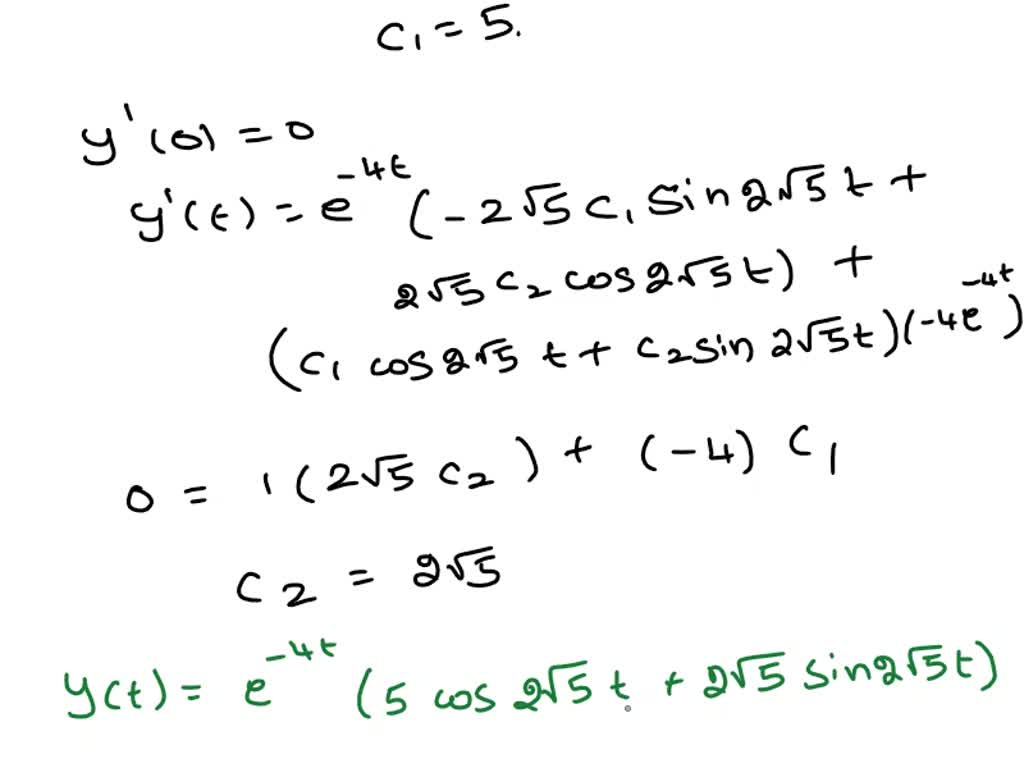 c₁ = 5.
y'(0) = 0
y'(t) = e⁻⁴ᵗ (-2√5 c₁ sin 2√5 t +
2√5 c₂ cos 2√5 t) +
(c₁ cos 2√5 t + c₂ sin 2√5 t)(-4e⁻⁴ᵗ)
0 = 1 (2√5 c₂) + (-4) c₁
c₂ = 2√5
y(t) = e⁻⁴ᵗ (5 cos 2√5 t + 2√5 sin 2√5 t)